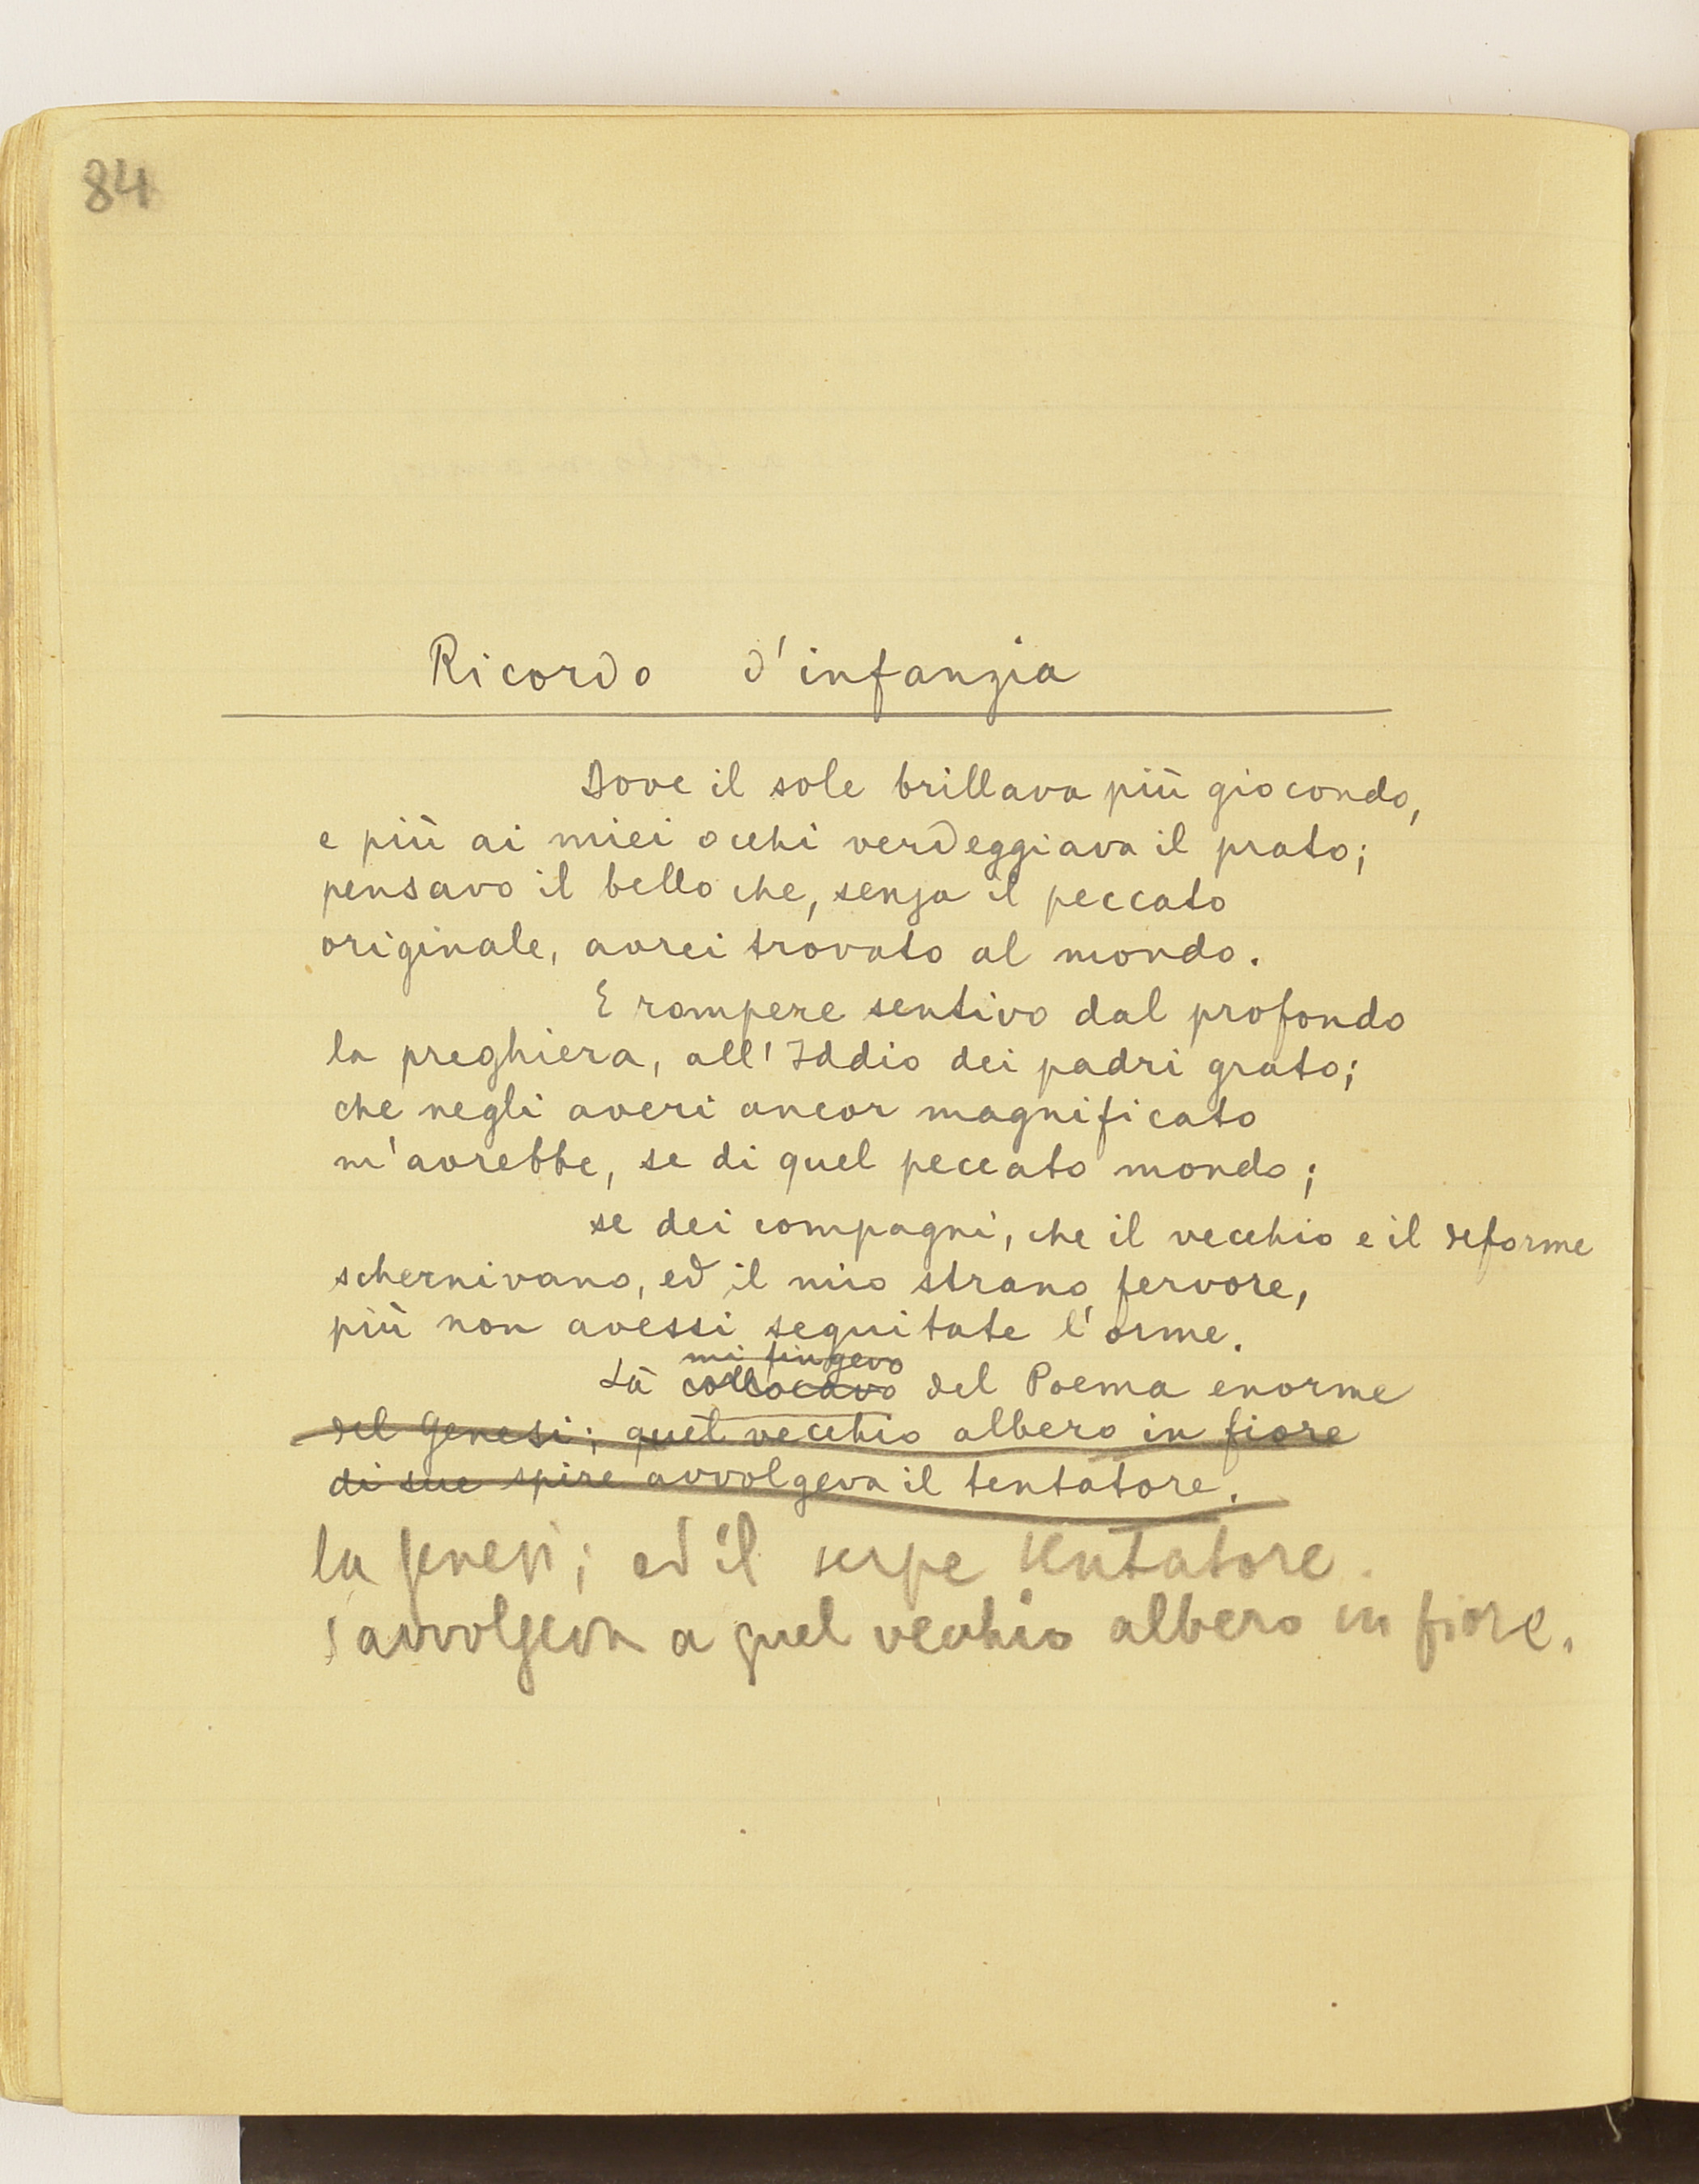 84
Ricordo d'infanzia
Dove il sole brillava più giocondo,
e più ai miei occhi verdeggiava il prato;
pensavo il bello che, senza il peccato
originale, avrei trovato al mondo.
E rompere sentivo dal profondo
la preghiera, all'Iddio dei padri grato;
che negli averi ancor magnificato
m'avrebbe, se di quel peccato mondo;
se dei compagni, che il vecchio e il deforme
schernivano, ed il mio strano fervore,
più non avessi seguitate l'orme.
mi fingevo
Là collocavo del Poema enorme
del Genesi; quel vecchio albero in fiore
di sue spire avvolgeva il tentatore.
la genesi; ed il serpe tentatore
s'avvolgeva a quel vecchio albero in fiore.